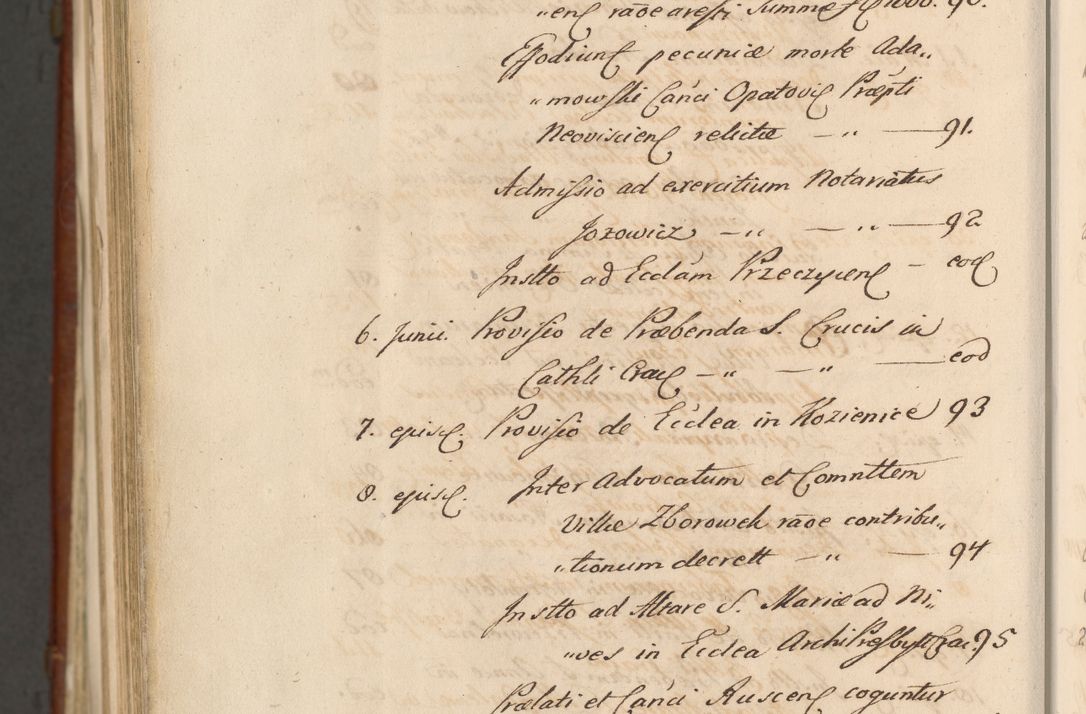 „enς raõe aresti Summæ fl 1000. 90.
Effodiunς pecuniæ morte Ada„
„mowski Cañci Opatoviς Præpti
Neovisciens relictæ — „ — 91.
Admissio ad exercitium Notariatus
Jozowicz — „ — „ — 92
Instto ad Ecclam Przeczycenς — eod
6. Junii. Provisio de Præbenda S. Crucis in
Cathli Crac — „ — „ — eod
7. ejusd. Provisio de Ecclea in Kozienice 93
8. ejusd. Inter Advocatum et Comnttem
Villæ Zborowek raõe contribu„
„tionum decrett — „ — 94
Instto ad Altare S. Mariæ ad Ni„
„ves in Ecclea ArchiPresbytt Crac. 95
Prælati et Cañci Ruscenς coguntur